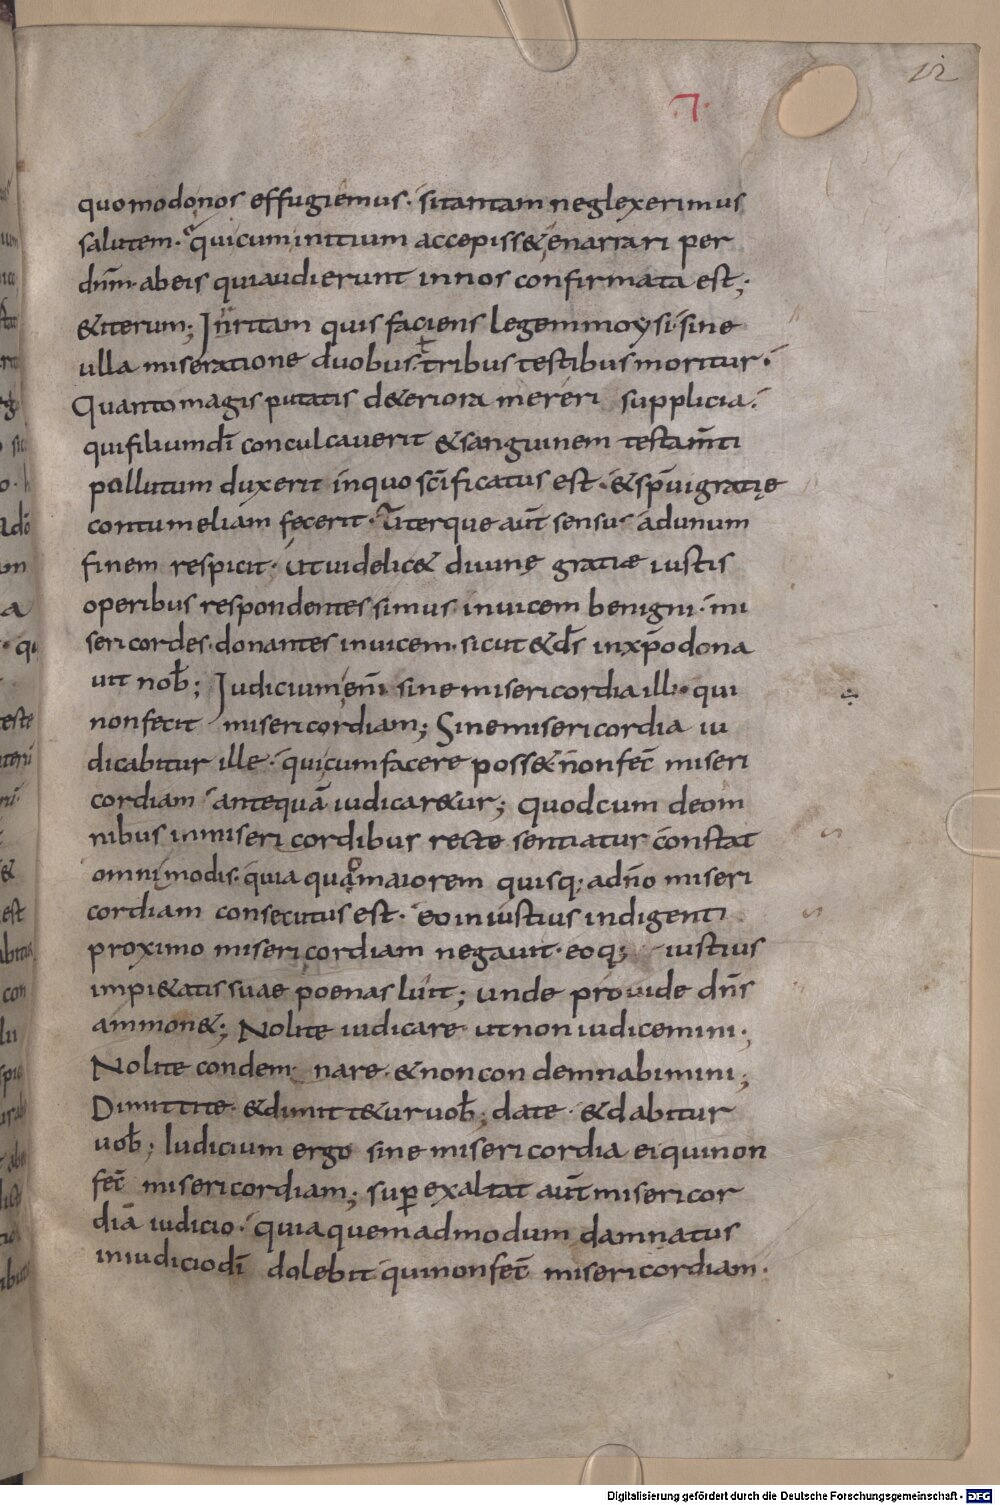 12
.7.
quomodo nos effugiemus. si tantam neglexerimus
salutem. quicum initium accepiss& enarrari per
dnm̄. ab eis qui audierunt in nos confirmata est;
& iterum; Inritam quis faciens legem moysi. sine
ulla miseratione duobus. ł tribus testibus moritur.
Quanto magis putatis d&eriora mereri supplicia.
qui filium dī conculcaverit & sanguinem testam̄ti
pollutum duxerit in quo scīficatus est. & spūi gratię
contumeliam fecerit. Uterque aūt sensus ad unum
finem respicit. ut videlic& divinę gratiæ iustis
operibus respondentes simus invicem benigni. mi
sericordes. donantes invicem. sicut & ds̄ in xp̄o dona
vit nob̄; Iudicium enī sine misericordia illi. qui
non fecit misericordiam; Sine misericordia iu
dicabitur ille. qui cum facere poss& non fec̄ miseri
cordiam antequā iudicar&ur; quod cum de om
nibus inmisericordibus recte sentiatur constat
omnimodis. quia quanto maiorem quisq; a dn̄o miseri
cordiam consecutus est. eo iniustius indigenti
proximo misericordiam negavit. eoq; iustius
impi&atis suae poenas luit; unde provide dn̄s
ammon&; Nolite iudicare ut non iudicemini;
Nolite condemnare. & non condemnabimini;
Dimittite. & dimitt&ur vob̄; date. & dabitur
vob̄; Iudicium ergo sine misericordia ei qui non
fec̄ misericordiam; superexaltat aūt misericor
diā iudicio. quia quemadmodum damnatus
in iudicio dī dolebit qui non fec̄ misericordiam.
Digitalisierung gefördert durch die Deutsche Forschungsgemeinschaft - DFG